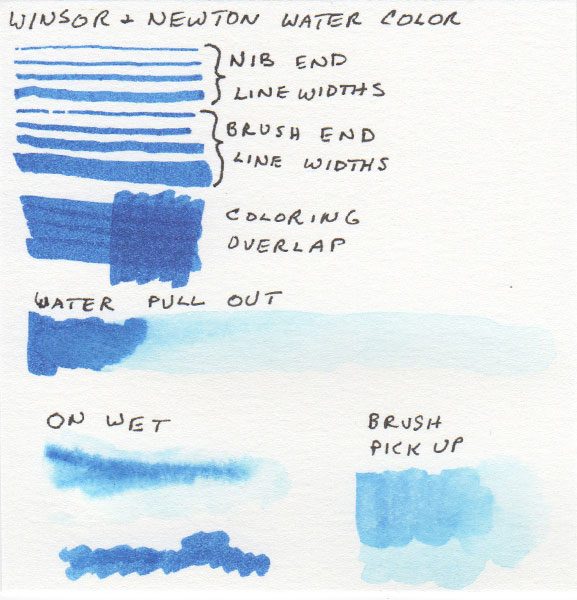 WINSOR + NEWTON WATER COLOR
NIB END
LINE WIDTHS
BRUSH END
LINE WIDTHS
COLORING
OVERLAP
WATER PULL OUT
ON WET
BRUSH
PICK UP